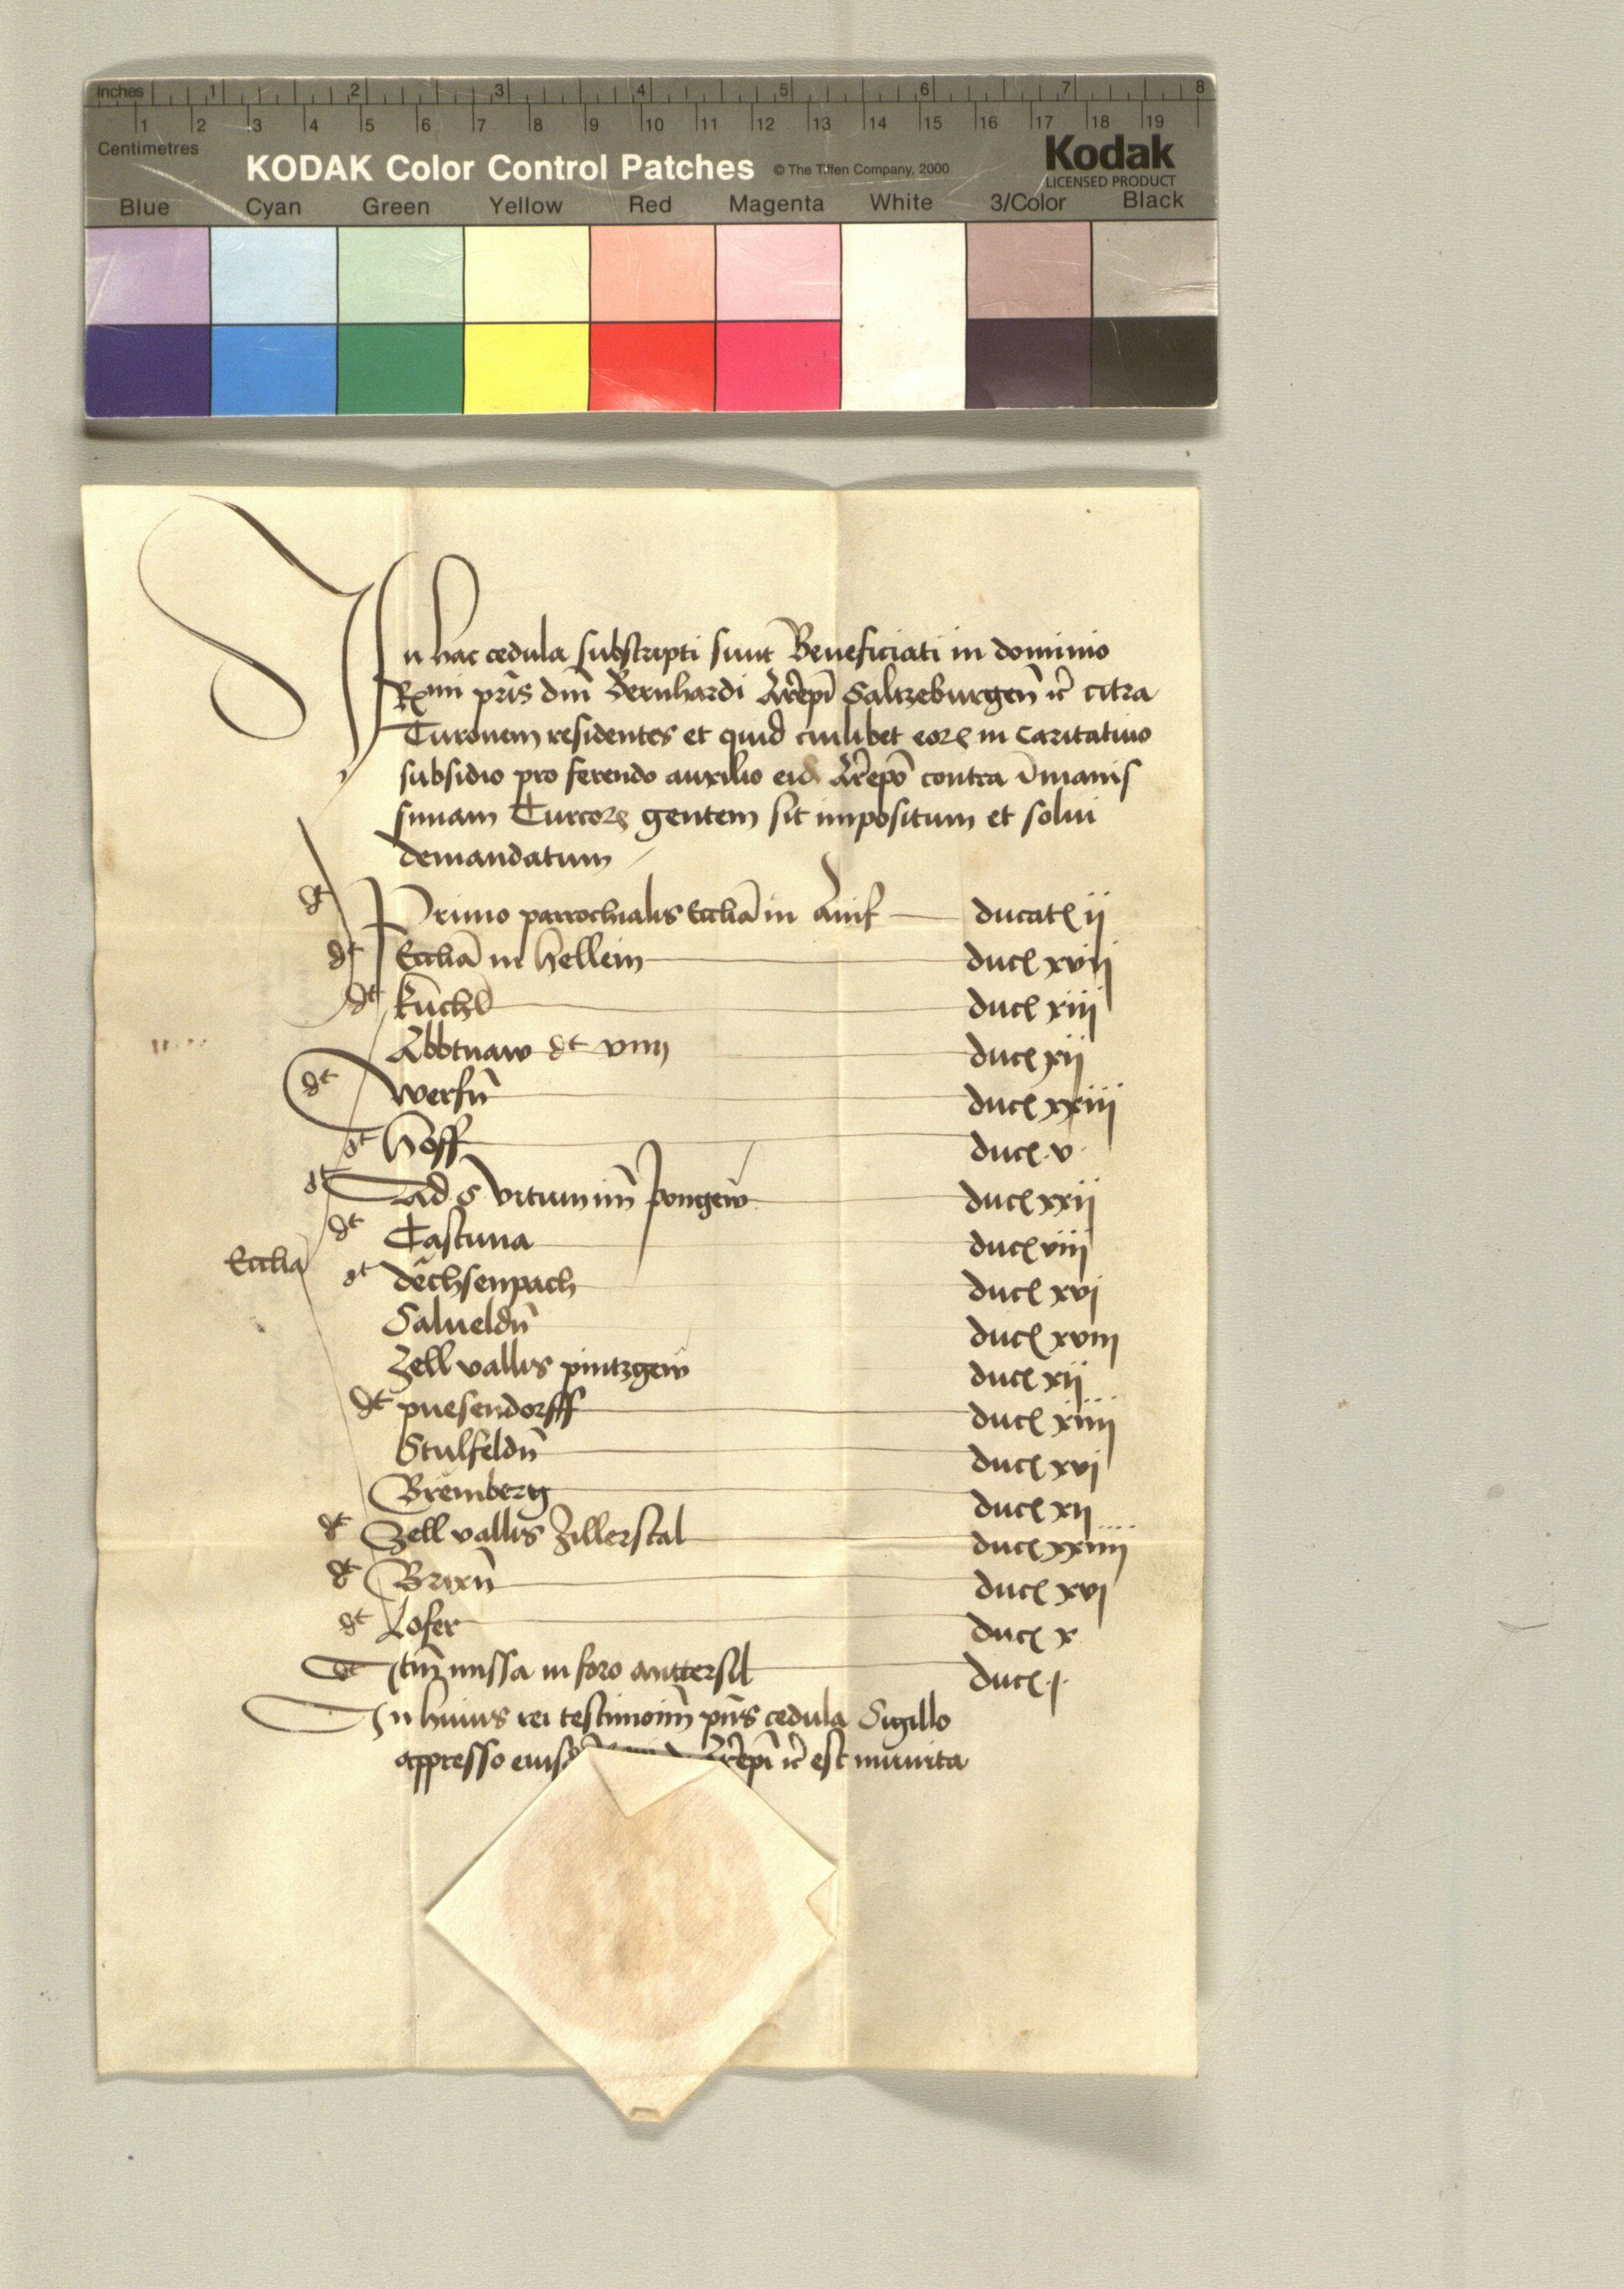 Inches 1 2 3 4 5 6 7 8
1 2 3 4 5 6 7 8 9 10 11 12 13 14 15 16 17 18 19
Centimetres
KODAK Color Control Patches © The Tiffen Company, 2000 Kodak
LICENSED PRODUCT
Blue Cyan Green Yellow Red Magenta White 3/Color Black
In hac cedula subscripti sunt Beneficiati in dominio
Rxmi pris dni Bernhardi Arepi Saltzeburgen̄ ꝛc̄ citra
Turonem residentes et quid cuilibet eorꝝ in Caritatiuo
subsidio pro ferendo auxilio eid Arepo contra īmanis
simam Turcorꝝ gentem sit impositum et solui
demandatum
dt Primo parrochialis Eccliā in Anif ducatꝭ ii
dt Eccliā in Hellein ducꝭ xvii
dt kuchl ducꝭ xiii
Abbtnaw dt viiii ducꝭ xii
dt werfn̄ ducꝭ xxiii
dt Hoff ducꝭ v
dt Ad S Vitum im̄ pongew ducꝭ xxii
dt Castuna ducꝭ viii
Ecclia dt dechsenpach ducꝭ xvi
Salueldn̄ ducꝭ xviii
Zell vallis pintzgew ducꝭ xii
dt puesendorff ducꝭ xiiii
Stulfeldn̄ ducꝭ xvi
Bremberg ducꝭ xii
dt Zell vallis Zillerstal ducꝭ xxiiii
dt Brixn̄ ducꝭ xvi
dt Lofer ducꝭ x
dt Itm̄ missa in foro anttersil ducꝭ j
In huius rei testimoīm pn̄s cedula Sigillo
appresso Arepi ꝛc̄ est munita